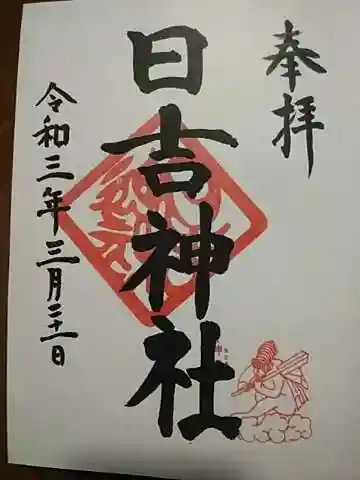 奉拝
日吉神社
令和三年三月二十一日